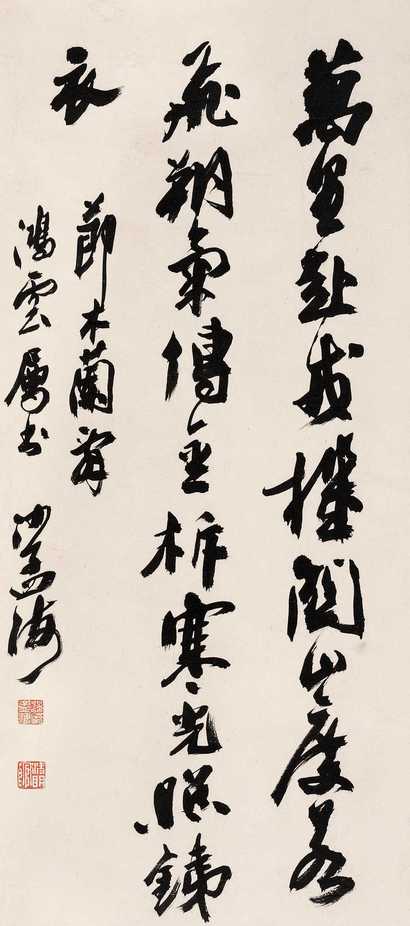 萬里赴戎機關山度若
飛朔氣傳金柝寒光照鐵
衣
節木蘭辭
鴻雲屬書 沙孟海